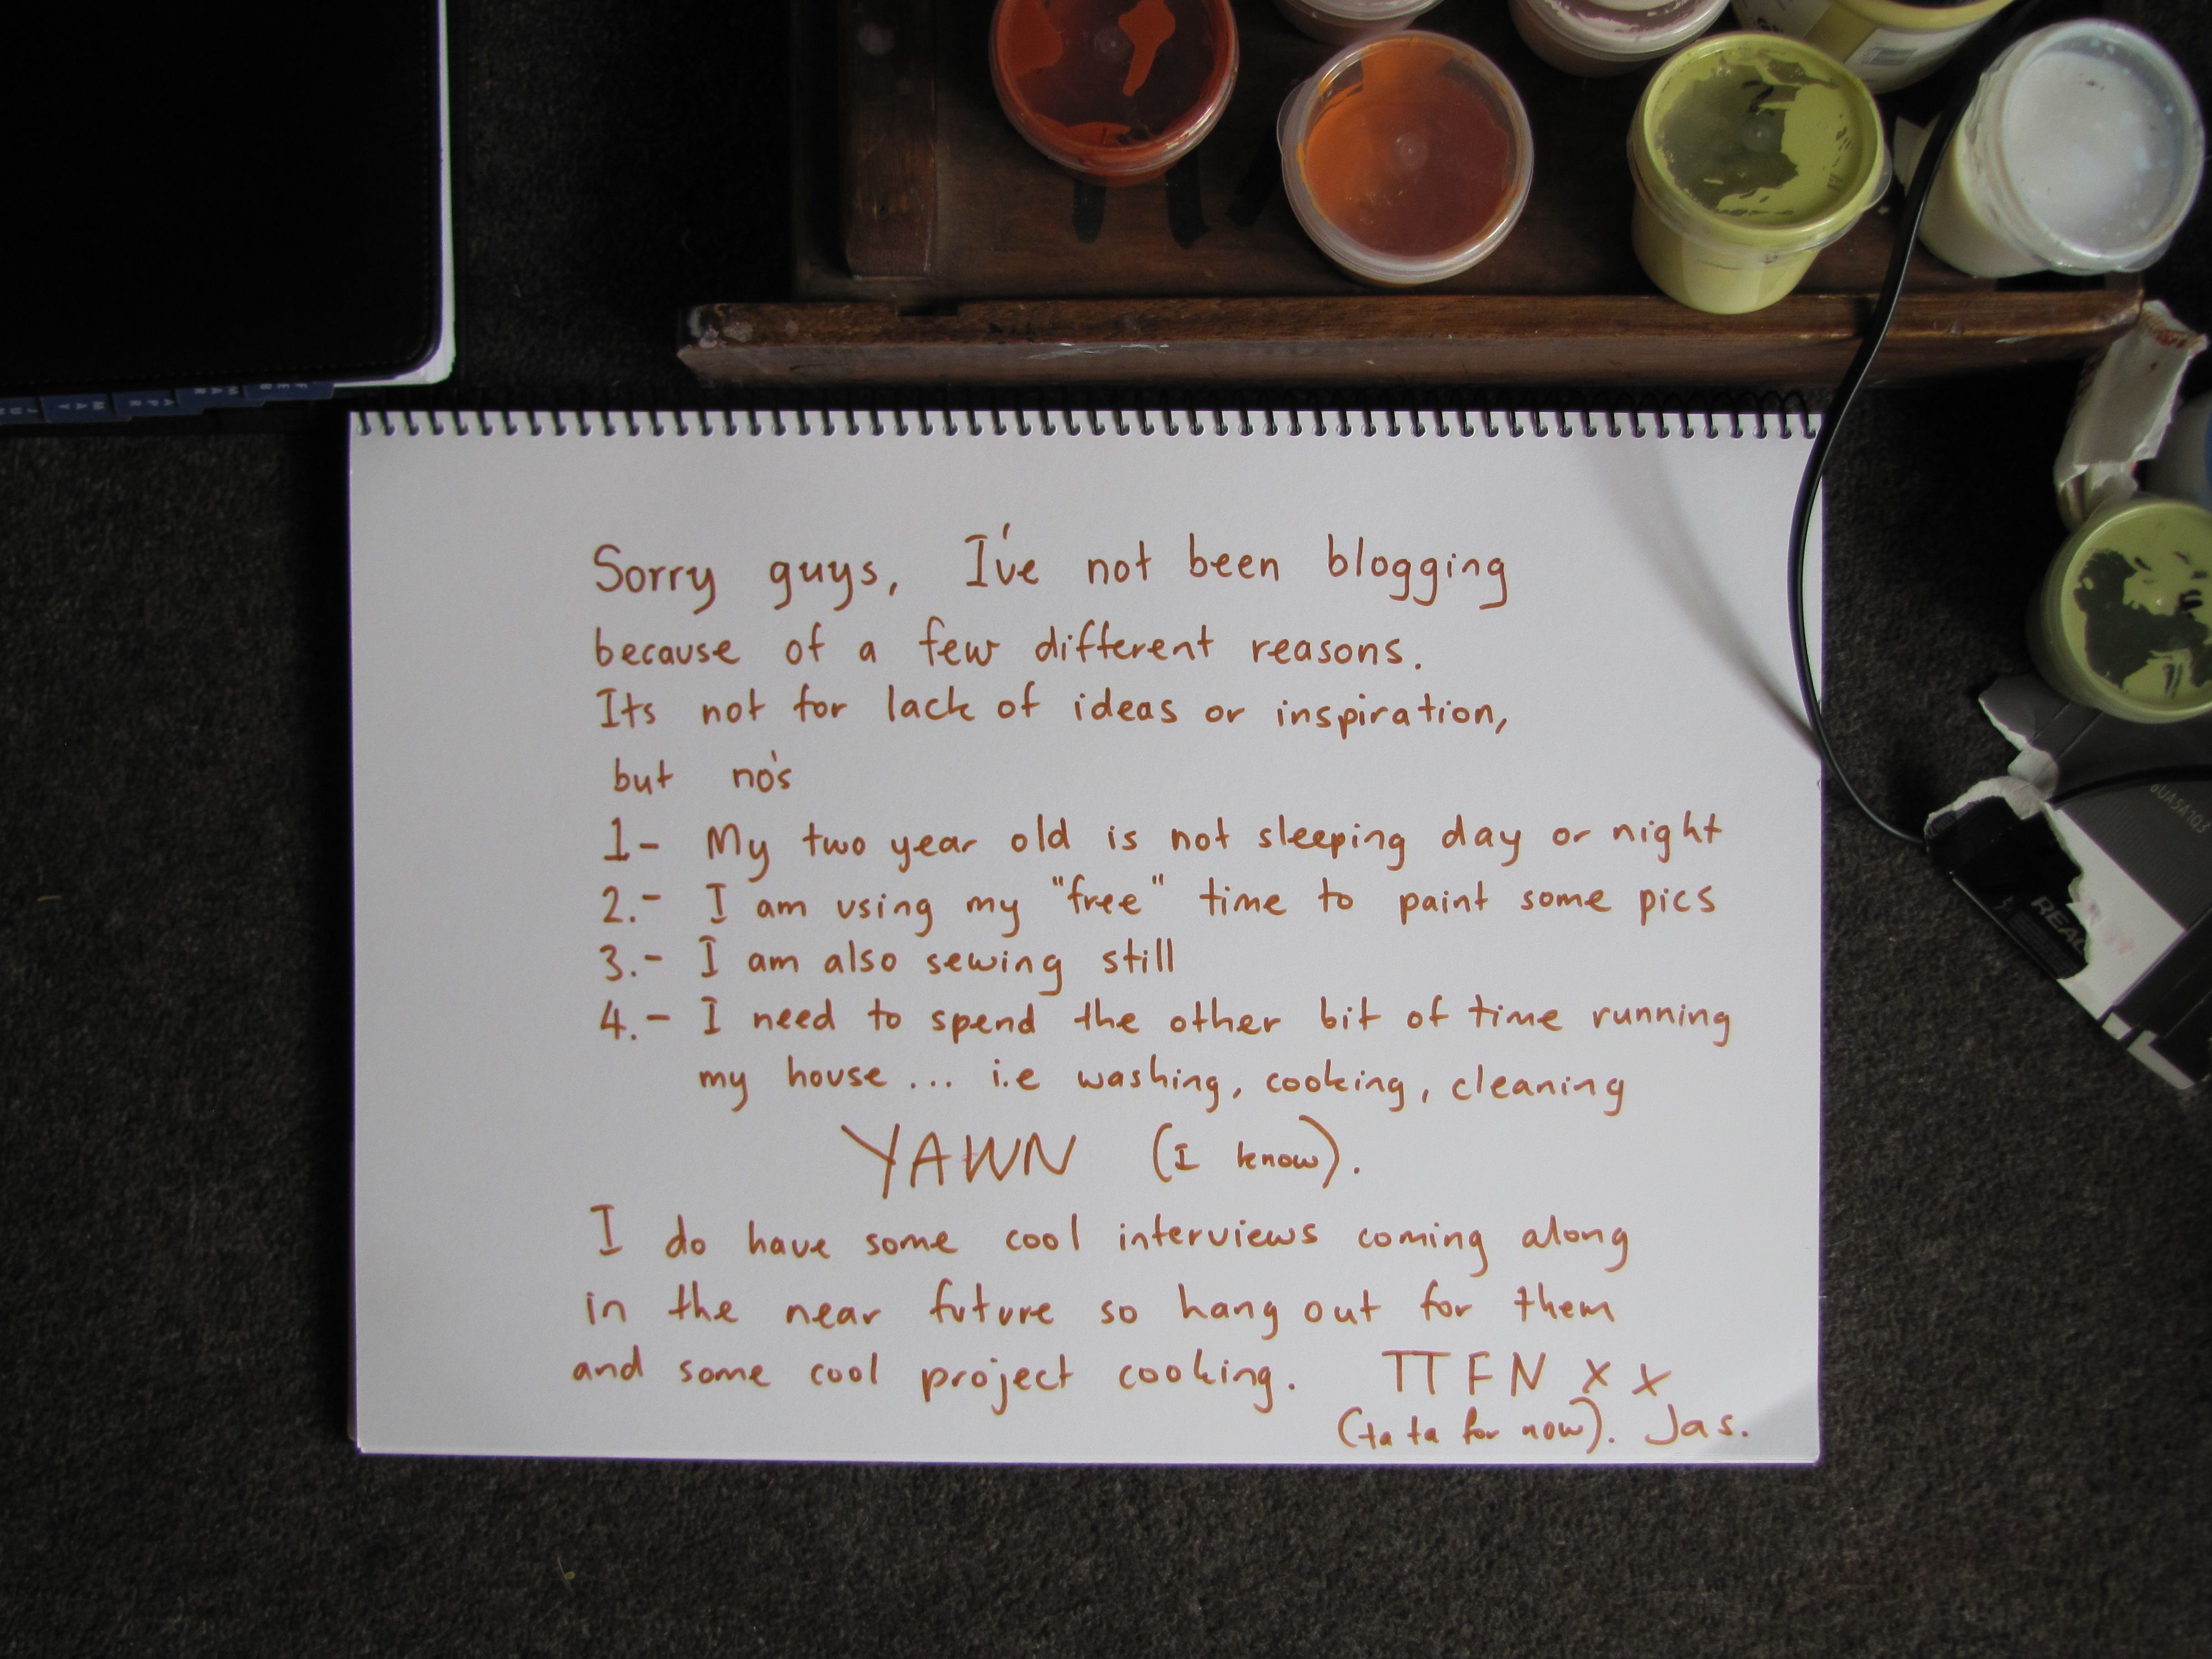 Sorry guys, I've not been blogging
because of a few different reasons.
Its not for lack of ideas or inspiration,
but no's
1- My two year old is not sleeping day or night
2.- I am using my "free" time to paint some pics
3.- I am also sewing still
4.- I need to spend the other bit of time running
my house... i.e washing, cooking, cleaning
YAWN (I know).
I do have some cool interviews coming along
in the near future so hang out for them
and some cool project cooking. TTFN x x
(ta ta for now). Jas.
FEB
MAR
APR
MAY